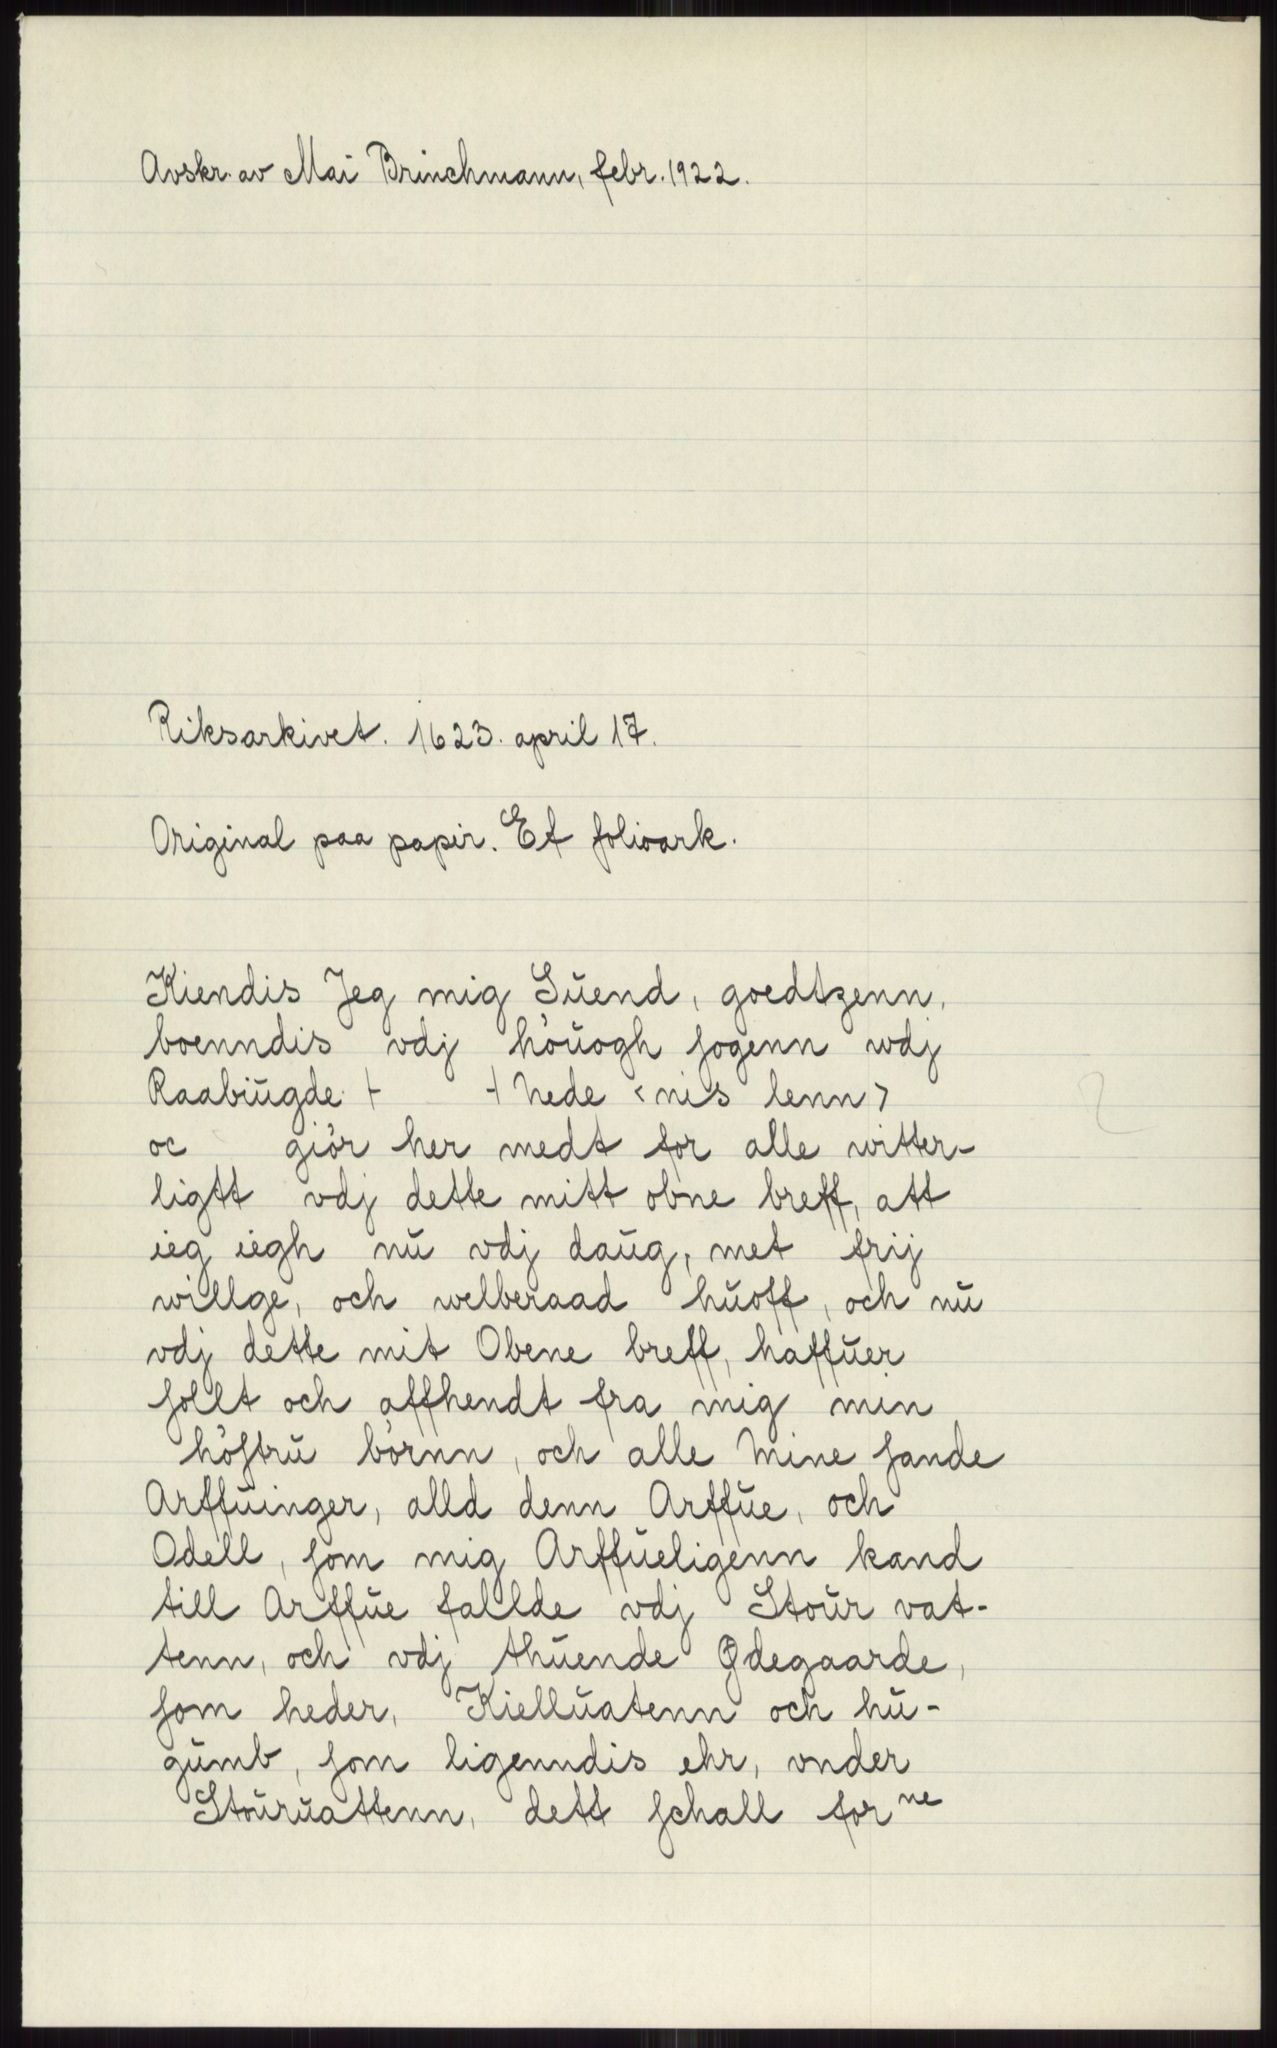 Avskr. av Mai Brinchmann, febr. 1922.
Riksarkivet. 1623. april 17.
Original paa papir. Et folioark.
Kiendis Jeg mig Suend, goedtzenn,
boenndis vdj höuogh sogenn wdj
Raabiugde + + Nede <nis lenn>
oc giör her medt for alle witter-
ligtt vdj dette mitt obne breff, att
ieg iegh nu vdj daug, met frij
willge, och welberaad huoff, och nu
vdj dette mit Obene breff, haffuer
sollt och affhendt fra mig min
höstru börnn, och alle Mine sande
Arffuinger, alld denn Arffue, och
Odell, som mig Arffueligenn kand
till Arffue fallde vdj Stour vat-
tenn, och vdj thuende Ødegaarde,
som heder, Kielluatenn och hu-
gumb, som ligenndis ehr, vnder
Stouruattenn, dett schall for ne